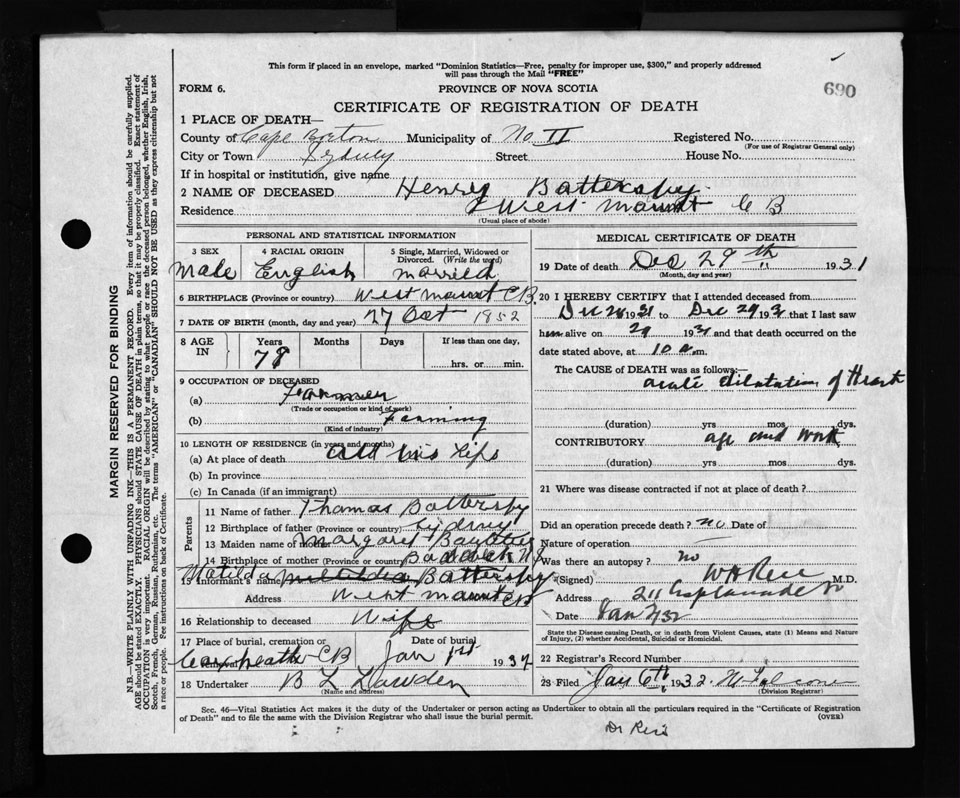 This form if placed in an envelope, marked "Dominion Statistics—Free, penalty for improper use, $300," and properly addressed
will pass through the Mail "FREE"
690
FORM 6.
PROVINCE OF NOVA SCOTIA
CERTIFICATE OF REGISTRATION OF DEATH
1 PLACE OF DEATH—
County of Cape Breton Municipality of No. II Registered No.
(For use of Registrar General only)
City or Town Sydney Street House No.
If in hospital or institution, give name
2 NAME OF DECEASED Henry Battersby
Residence West Mount C B
(Usual place of abode)
PERSONAL AND STATISTICAL INFORMATION
3 SEX 4 RACIAL ORIGIN 5 Single, Married, Widowed or
Divorced. (Write the word)
Male English married
6 BIRTHPLACE (Province or country) West Mount C.B.
7 DATE OF BIRTH (month, day and year) 27 Oct 1852
8 AGE IN Years Months Days If less than one day,
78 hrs. or min.
9 OCCUPATION OF DECEASED
(a) Farmer
(Trade or occupation or kind of work)
(b) Farming
(Kind of industry)
10 LENGTH OF RESIDENCE (in years and months)
(a) At place of death all his life
(b) In province
(c) In Canada (if an immigrant)
Parents
11 Name of father Thomas Battersby
12 Birthplace of father (Province or country) Sydney
13 Maiden name of mother Margaret
14 Birthplace of mother (Province or country) Baddeck N S
15 Informant's name Matilda Battersby
Address West Mount CB
16 Relationship to deceased Wife
17 Place of burial, cremation or Date of burial
Coxheath CB Jan 1st 1932
18 Undertaker B L Dawden
(Name and address)
MEDICAL CERTIFICATE OF DEATH
19 Date of death Dec 29th 1931
(Month, day and year)
20 I HEREBY CERTIFY that I attended deceased from
Dec 28 1931 to Dec 29 1931 that I last saw
him alive on 29 1931 and that death occurred on the
date stated above, at 10 a.m.
The CAUSE of DEATH was as follows:—
acute dilatation of Heart
(duration) yrs mos dys.
CONTRIBUTORY age and work
(duration) yrs mos dys.
21 Where was disease contracted if not at place of death?
Did an operation precede death? no Date of
Nature of operation
Was there an autopsy? no
(Signed) W H Rice M.D.
Address 211 Esplanade
Date Jan 2/32
State the Disease causing Death, or in death from Violent Causes, state (1) Means and Nature
of Injury, (2) whether Accidental, Suicidal or Homicidal.
22 Registrar's Record Number
23 Filed Jan 6th, 1932.
(Division Registrar)
Sec. 46—Vital Statistics Act makes it the duty of the Undertaker or person acting as Undertaker to obtain all the particulars required in the "Certificate of Registration
of Death" and to file the same with the Division Registrar who shall issue the burial permit.
(OVER)
Dr Rice
MARGIN RESERVED FOR BINDING
N.B.—WRITE PLAINLY WITH UNFADING INK—THIS IS A PERMANENT RECORD. Every item of information should be carefully supplied.
AGE should be stated EXACTLY. PHYSICIANS should STATE CAUSE OF DEATH in plain terms, so that it may be properly classified. Exact statement of
OCCUPATION is very important. RACIAL ORIGIN will be described by stating to what people or race the deceased person belonged, whether English, Irish,
Scotch, French, German, Russian, Ruthenian, etc. The terms "AMERICAN" or "CANADIAN" SHOULD NOT BE USED as they express citizenship but not
a race or people. See instructions on back of Certificate.